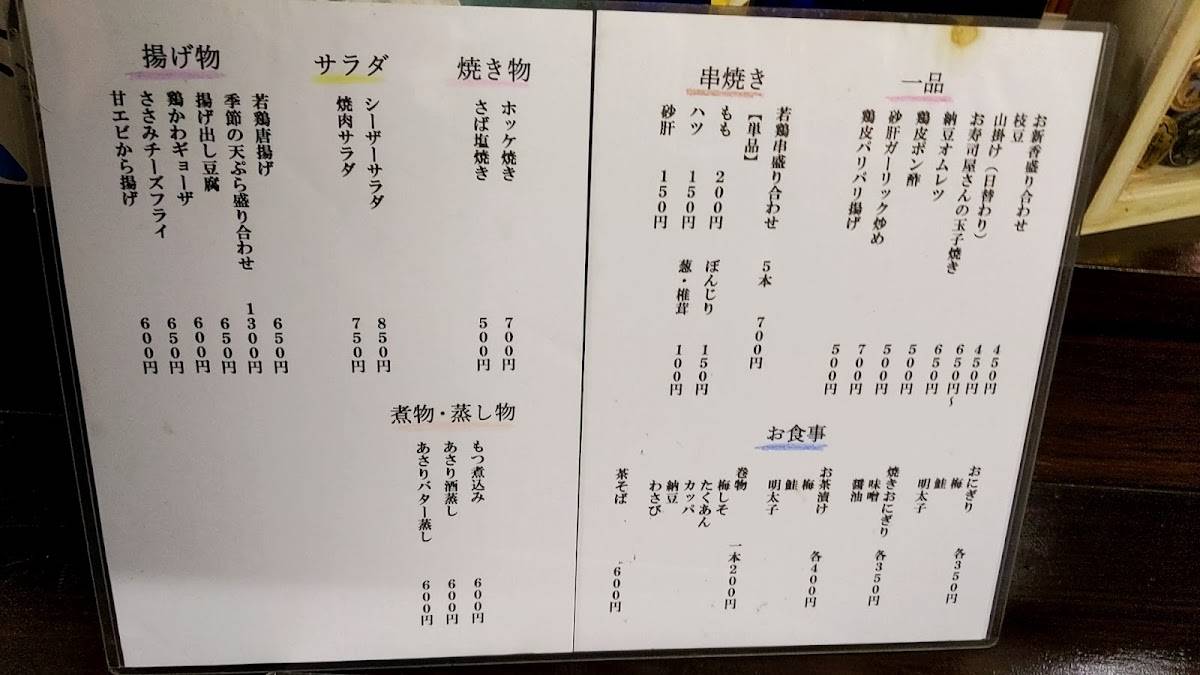 一品
お新香盛り合わせ 450円
枝豆 450円
山掛け（日替わり） 650円〜
お寿司屋さんの玉子焼き 650円
納豆オムレツ 500円
鶏皮ポン酢 500円
砂肝ガーリック炒め 700円
鶏皮パリパリ揚げ 500円
串焼き
若鶏串盛り合わせ 5本 700円
【単品】
もも 200円 ぼんじり 150円
ハツ 150円 葱・椎茸 100円
砂肝 150円
お食事
おにぎり 各350円
梅
鮭
明太子
焼きおにぎり 各350円
味噌
醤油
お茶漬け 各400円
梅
鮭
明太子
巻物 一本200円
梅しそ
たくあん
カッパ
納豆
わさび
茶そば 600円
焼き物
ホッケ焼き 700円
さば塩焼き 500円
サラダ
シーザーサラダ 850円
焼肉サラダ 750円
揚げ物
若鶏唐揚げ 650円
季節の天ぷら盛り合わせ 1300円
揚げ出し豆腐 650円
鶏かわギョーザ 600円
ささみチーズフライ 650円
甘エビから揚げ 600円
煮物・蒸し物
もつ煮込み 600円
あさり酒蒸し 600円
あさりバター蒸し 600円